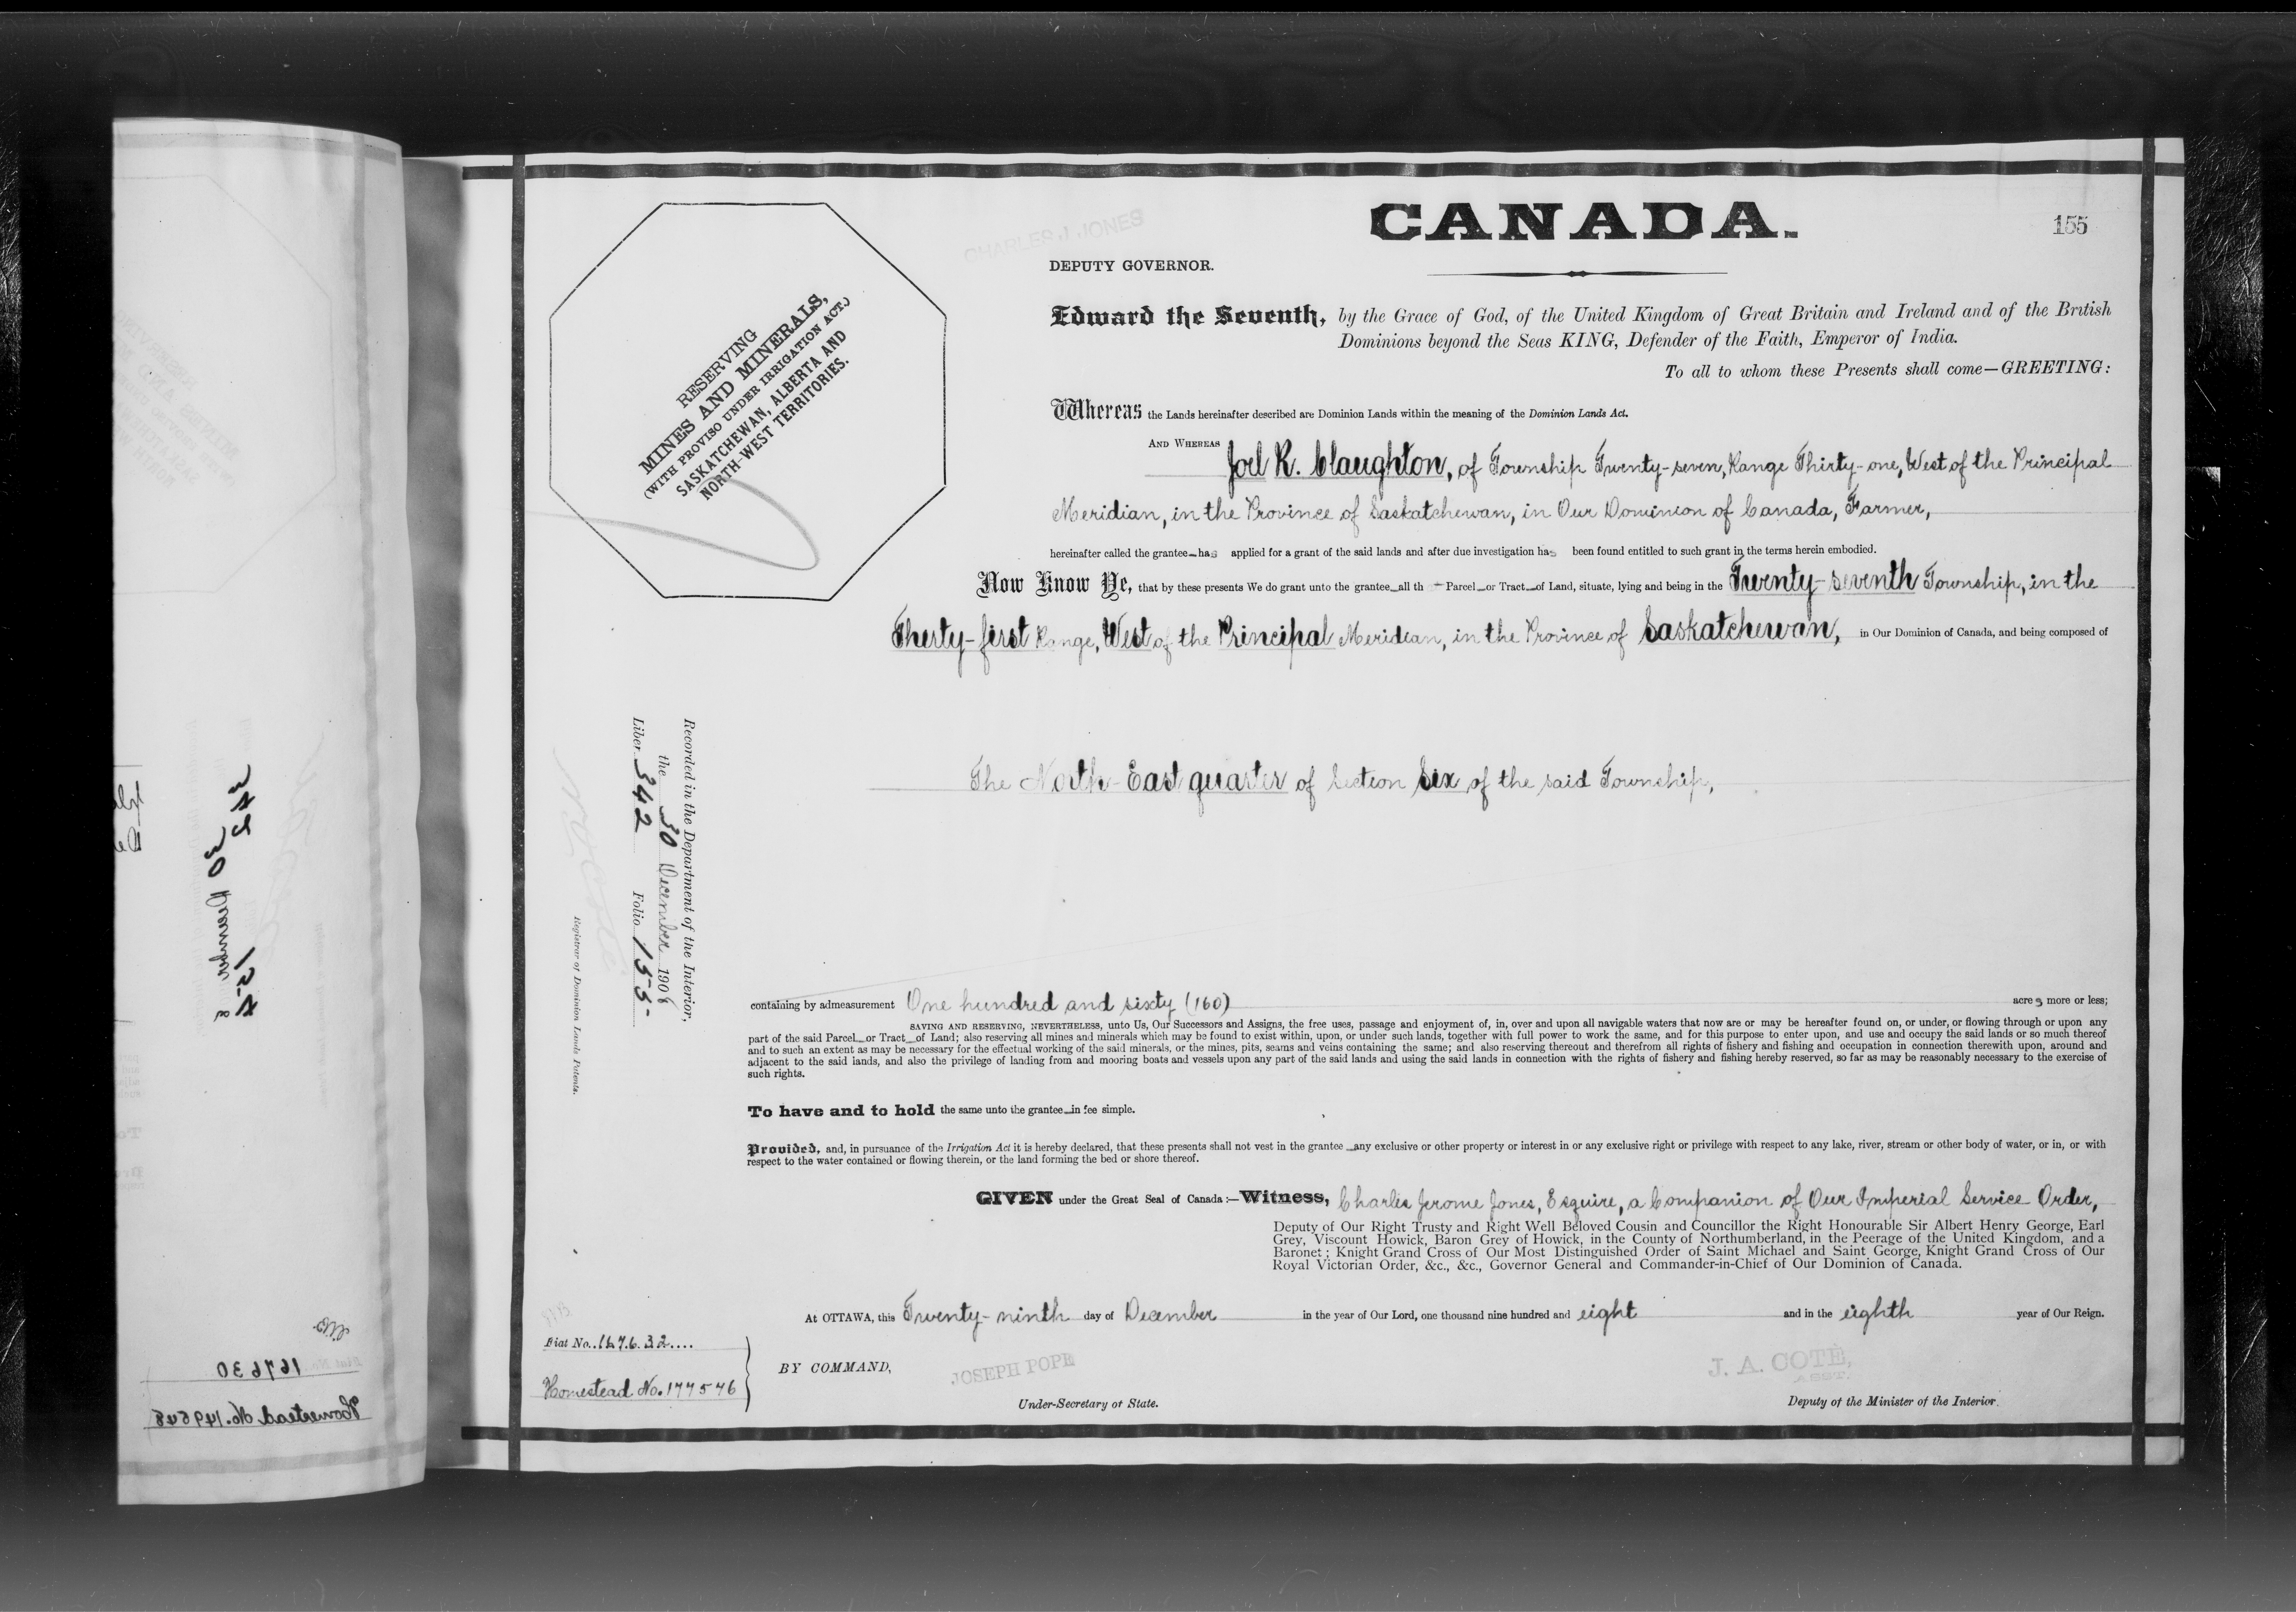 CANADA.
155
CHARLES J. JONES
DEPUTY GOVERNOR.
RESERVING
MINES AND MINERALS,
(WITH PROVISO UNDER IRRIGATION ACT.)
SASKATCHEWAN, ALBERTA AND
NORTH-WEST TERRITORIES.
Edward the Seventh, by the Grace of God, of the United Kingdom of Great Britain and Ireland and of the British
Dominions beyond the Seas KING, Defender of the Faith, Emperor of India.
To all to whom these Presents shall come—GREETING:
Whereas the Lands hereinafter described are Dominion Lands within the meaning of the Dominion Lands Act.
AND WHEREAS Joel R. Claughton, of Township Twenty-seven, Range Thirty-one, West of the Principal
Meridian, in the Province of Saskatchewan, in Our Dominion of Canada, Farmer,
hereinafter called the grantee has applied for a grant of the said lands and after due investigation has been found entitled to such grant in the terms herein embodied.
Now Know Ye, that by these presents We do grant unto the grantee all th Parcel or Tract of Land, situate, lying and being in the Twenty-seventh Township, in the
Thirty-first Range, West of the Principal Meridian, in the Province of Saskatchewan, in Our Dominion of Canada, and being composed of
The North-East quarter of Section Six of the said Township,
Recorded in the Department of the Interior,
the 30 December 1908
Liber 342 Folio 155
Registrar of Dominion Lands Patents.
containing by admeasurement One hundred and sixty (160) acres more or less;
SAVING AND RESERVING, NEVERTHELESS, unto Us, Our Successors and Assigns, the free uses, passage and enjoyment of, in, over and upon all navigable waters that now are or may be hereafter found on, or under, or flowing through or upon any
part of the said Parcel or Tract of Land; also reserving all mines and minerals which may be found to exist within, upon, or under such lands, together with full power to work the same, and for this purpose to enter upon, and use and occupy the said lands or so much thereof
and to such an extent as may be necessary for the effectual working of the said minerals, or the mines, pits, seams and veins containing the same; and also reserving thereout and therefrom all rights of fishery and fishing and occupation in connection therewith upon, around and
adjacent to the said lands, and also the privilege of landing from and mooring boats and vessels upon any part of the said lands and using the said lands in connection with the rights of fishery and fishing hereby reserved, so far as may be reasonably necessary to the exercise of
such rights.
To have and to hold the same unto the grantee in fee simple.
Provided, and, in pursuance of the Irrigation Act it is hereby declared, that these presents shall not vest in the grantee any exclusive or other property or interest in or any exclusive right or privilege with respect to any lake, river, stream or other body of water, or in, or with
respect to the water contained or flowing therein, or the land forming the bed or shore thereof.
GIVEN under the Great Seal of Canada:—Witness, Charles Jerome Jones, Esquire, a Companion of Our Imperial Service Order,
Deputy of Our Right Trusty and Right Well Beloved Cousin and Councillor the Right Honourable Sir Albert Henry George, Earl
Grey, Viscount Howick, Baron Grey of Howick, in the County of Northumberland, in the Peerage of the United Kingdom, and a
Baronet; Knight Grand Cross of Our Most Distinguished Order of Saint Michael and Saint George, Knight Grand Cross of Our
Royal Victorian Order, &c., &c., Governor General and Commander-in-Chief of Our Dominion of Canada.
At OTTAWA, this Twenty-ninth day of December in the year of Our Lord, one thousand nine hundred and eight and in the eighth year of Our Reign.
Fiat No. 167632
Homestead No. 177576
BY COMMAND,
JOSEPH POPE
Under-Secretary of State.
J. A. COTÉ,
ASST.
Deputy of the Minister of the Interior.
342
30 December 8
154
167630
Homestead No. 149548